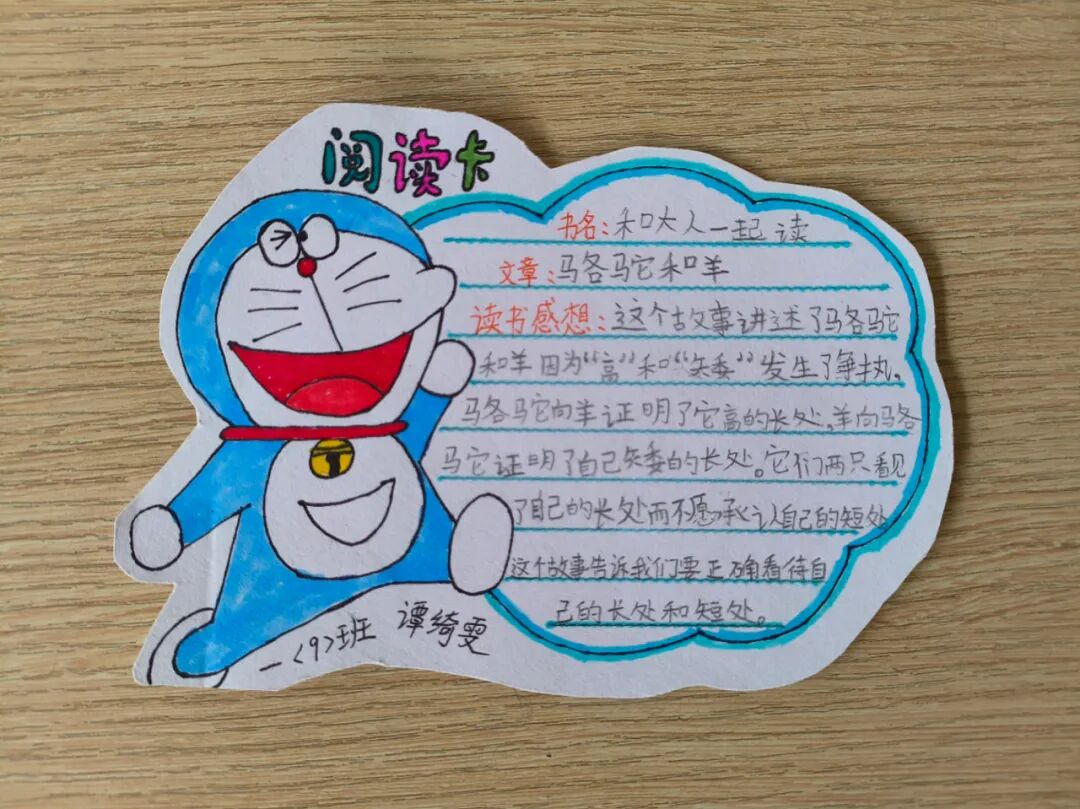 阅读卡
书名:和大人一起读
文章:骆驼和羊
读书感想:这个故事讲述了骆驼
和羊因为“高”和“矮”发生了争执。
骆驼向羊证明了它高的长处。羊向骆
驼证明了自己矮的长处。它们两只看见
了自己的长处而不愿承认自己的短处
这个故事告诉我们要正确看待自
己的长处和短处。
一<9>班 谭绮雯